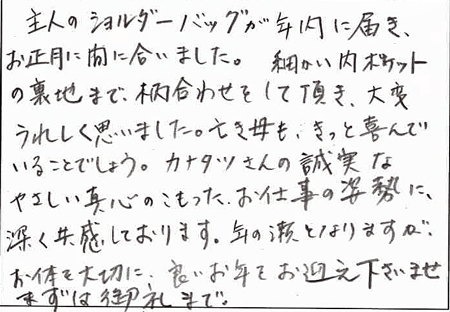 主人のショルダーバッグが年内に届き、
お正月に間に合いました。 細かい内ポケット
の裏地まで、柄合わせをして頂き、大変
うれしく思いました。亡き母も、きっと喜んで
いることでしょう。カナタツさんの誠実な
やさしい真心のこもった、お仕事の姿勢に、
深く共感しております。年の瀬となりますが、
お体を大切に、良いお年をお迎え下さいませ
まずは御礼まで。